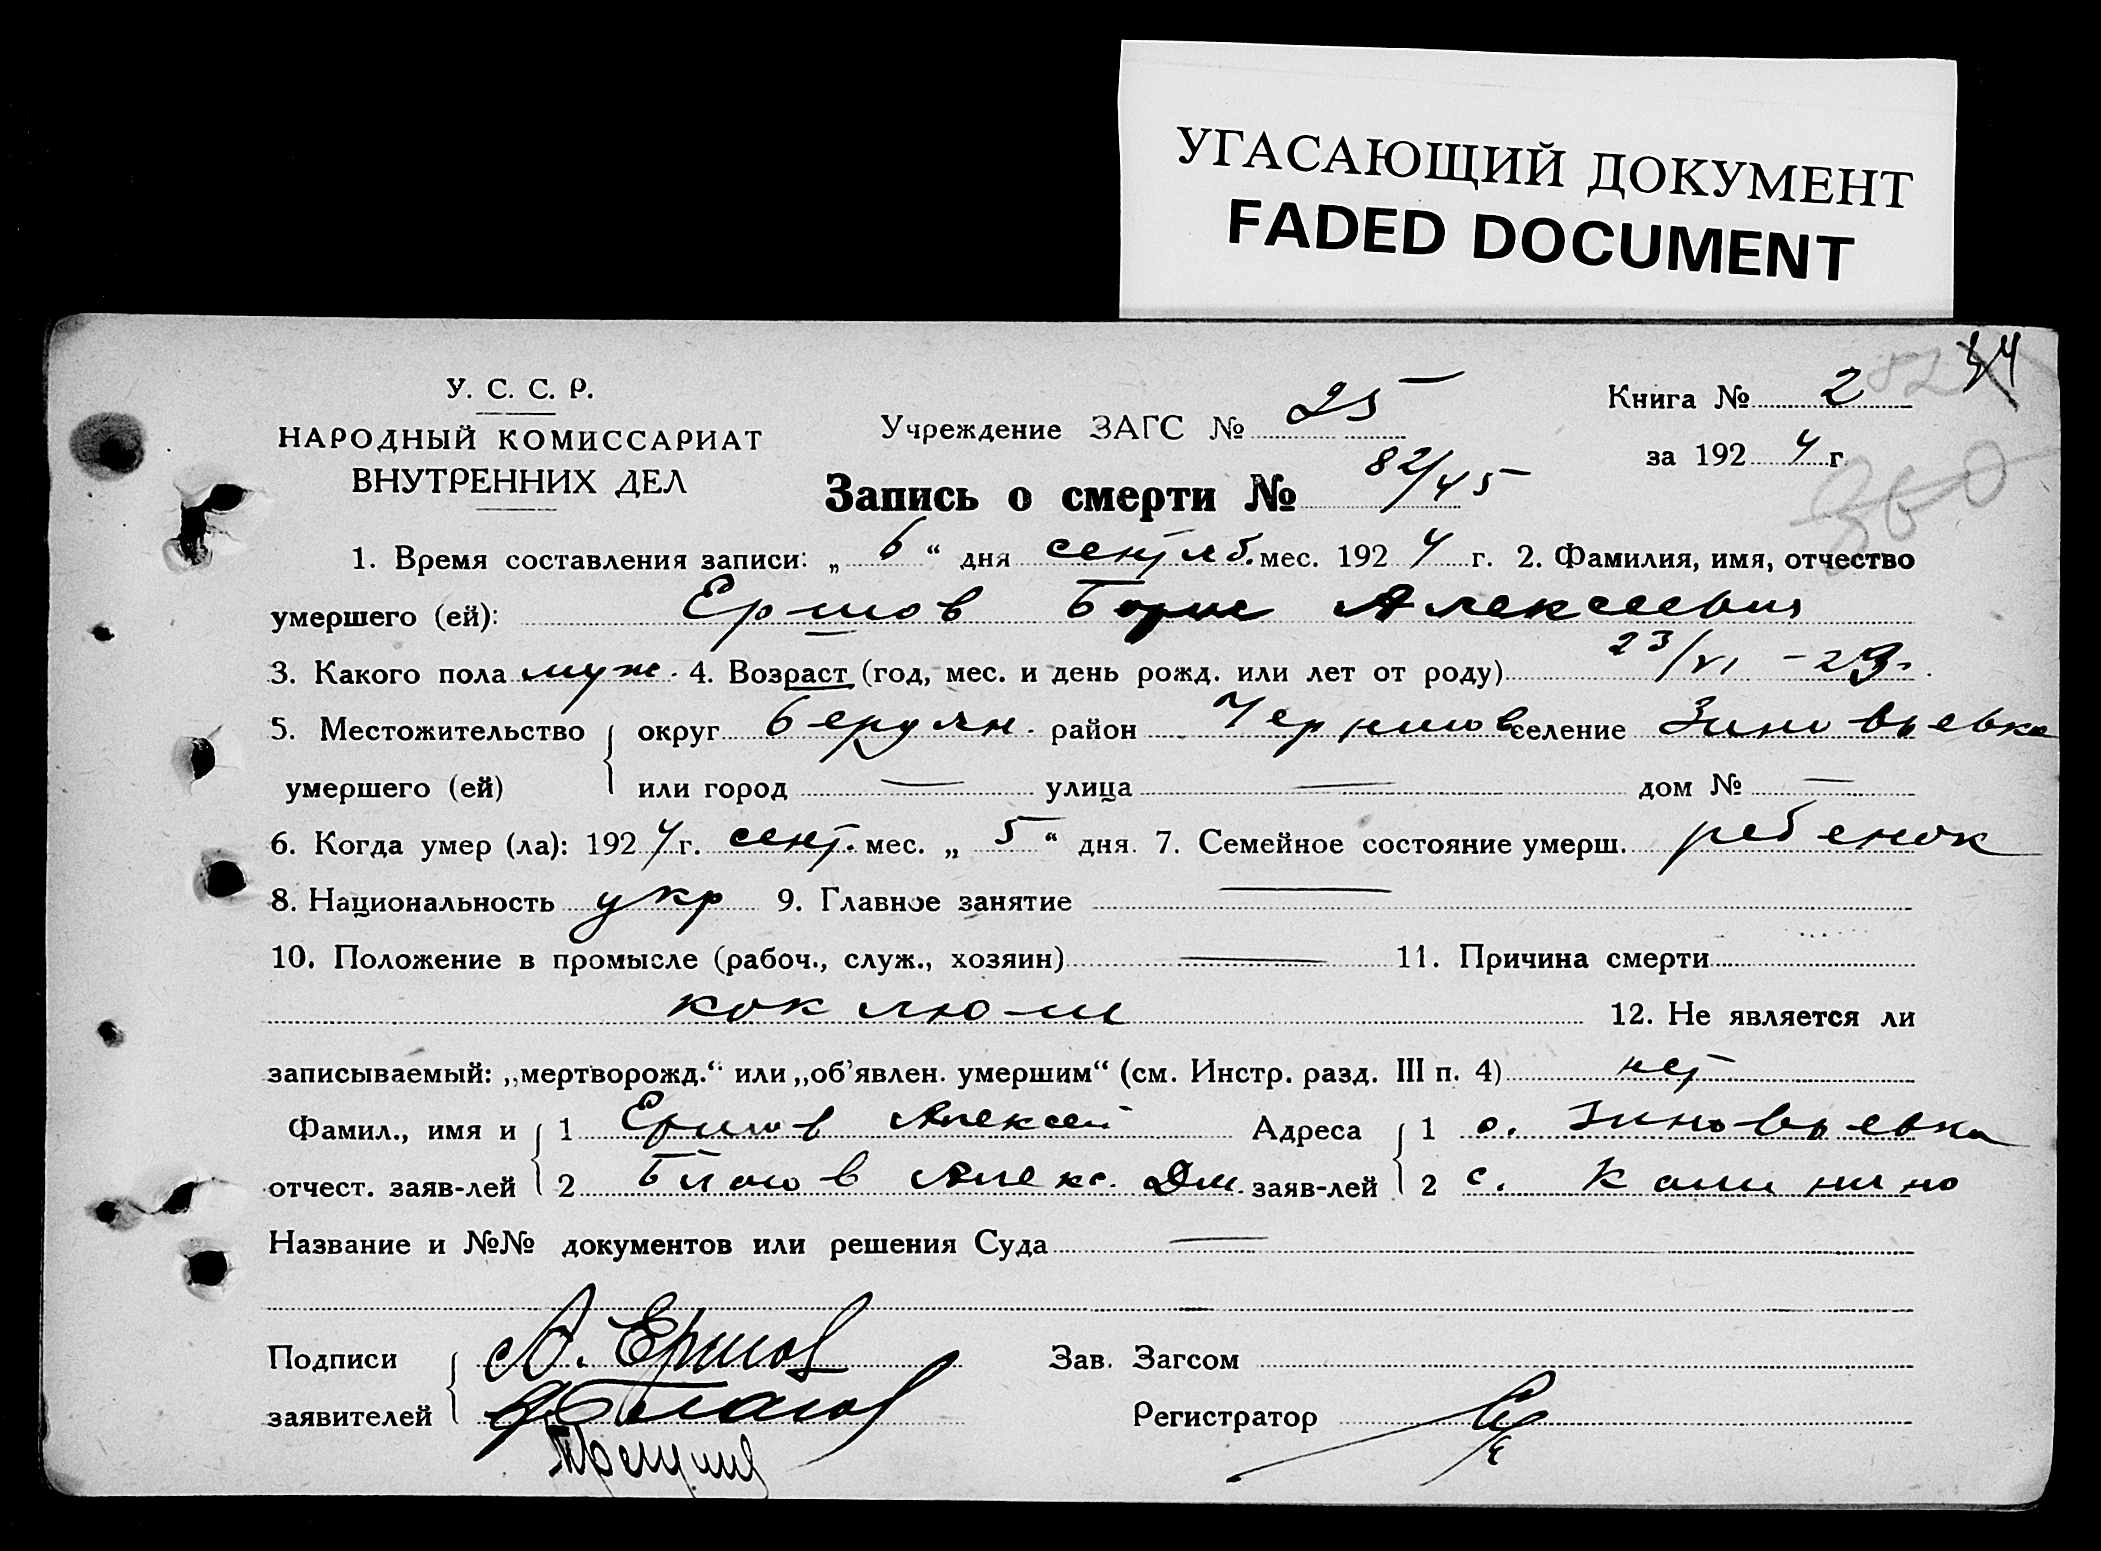 УГАСАЮЩИЙ ДОКУМЕНТ
FADED DOCUMENT
У. С. С. Р.
НАРОДНЫЙ КОМИССАРИАТ
ВНУТРЕННИХ ДЕЛ
Учреждение ЗАГС № 25
Книга № 2 82 44
за 1924 г.
360
Запись о смерти № 82/45
1. Время составления записи: „ 6 “ дня сентяб. мес. 1924 г. 2. Фамилия, имя, отчество
умершего (ей): Ершов Борис Алексеевич
3. Какого пола муж. 4. Возраст (год, мес. и день рожд. или лет от роду) 23/VI - 23
5. Местожительство округ Бердян. район Чернигов селение Зиновьевка
умершего (ей) или город — улица — дом № —
6. Когда умер (ла): 1924 г. сент. мес. „ 5 “ дня. 7. Семейное состояние умерш. ребенок
8. Национальность укр 9. Главное занятие —
10. Положение в промысле (рабоч., служ., хозяин) — 11. Причина смерти
коклюш 12. Не является ли
записываемый: „мертворожд.“ или „об’явлен. умершим“ (см. Инстр. разд. III п. 4) нет
Фамил., имя и 1 Ершов Алексей Адреса 1 с. Зиновьевка
отчест. заяв-лей 2 Алекс. Дм. заяв-лей 2 с. Калинино
Название и №№ документов или решения Суда —
Подписи А. Ершов Зав. Загсом
заявителей Регистратор